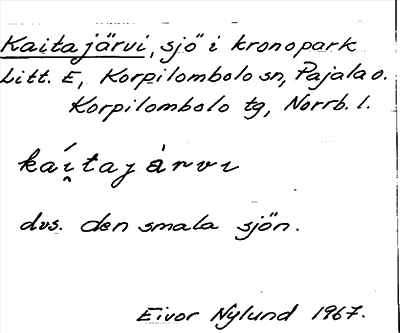 Kaitajärvi, sjö i kronopark
Litt. E, Korpilombolo sn, Pajala o.
Korpilombolo tg, Norrb. l.
kaí̯tajàrvi
dvs. den smala sjön.
Eivor Nylund 1967.